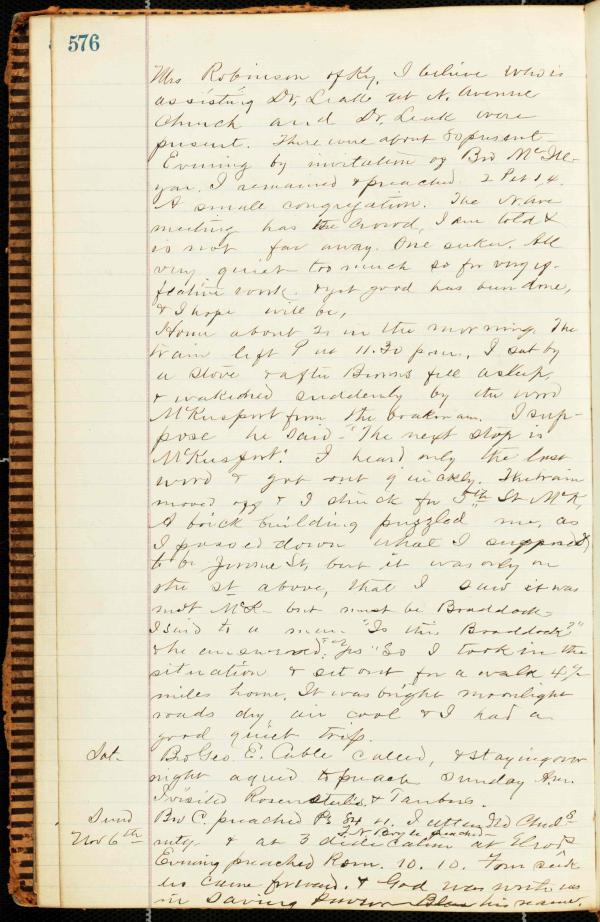 576
Mrs Robinson of Ky. I believe who is
assisting Dr. Leak at N. Avenue
Church and Dr. Leak were
present. There were about 80 present
Evening by invitation of Bro McIl-
yar. I remained & preached. 2 Pet 1,4.
A small congregation. The N. Ave
meeting has the crowd, I am told &
is not far away. One seeker. All
very quiet too much so for very ef-
fective work. & yet good has been done,
& I hope will be,
Home about 2 in the morning. The
train left P at 11.30 p.m. I sat by
a stove & after Binns fell asleep,
& wakened suddenly by the word
McKeesport from the brakeman. I sup-
pose he said "The next stop is
McKeesport." I heard only the last
word & got out quickly. The train
moved off & I struck for 5th St McK,
A brick building puzzled me, as
I passed down what I supposed
to be Jerome St, but it was only on
the st above, that I saw it was
not McK- but must be Braddock-
I said to a man "Is this Braddock?"
& he answered: "Yes" So I took in the
situation & set out for a walk 4 1/2
miles home. It was bright moonlight
roads dry air cool & I had a
good quiet trip.
Sat. Bro Geo. E. Cable called, & staying over
night agreed to preach Sunday A.m.
I visited &
Sund Bro C. preached Ps 84 11. I attended
Nov 6th & at 3 at
preached
Evening preached Rom. 10. 10. Four seek
ers came forward. & God was with us
in saving his name.